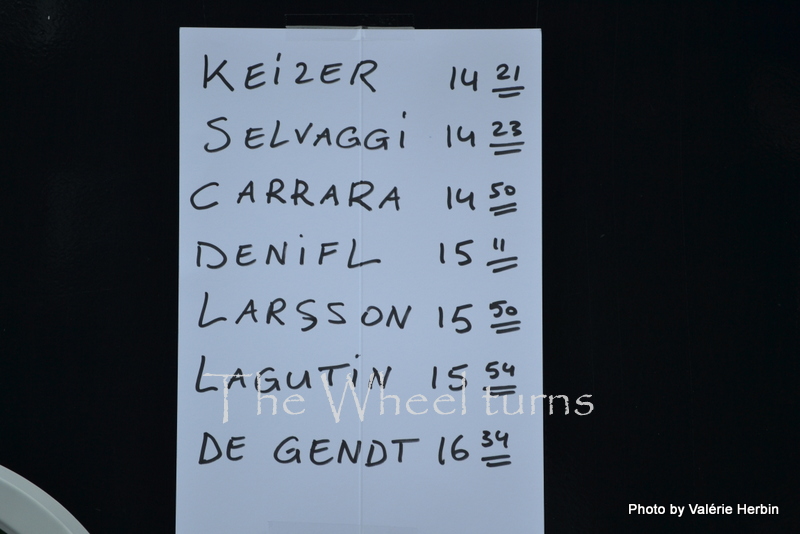 KEiZER 14 21
SELVAGGi 14 23
CARRARA 14 50
DENiFL 15 11
LARSSON 15 50
LAGUTiN 15 54
The Wheel turns
DE GENDT 16 34
Photo by Valérie Herbin